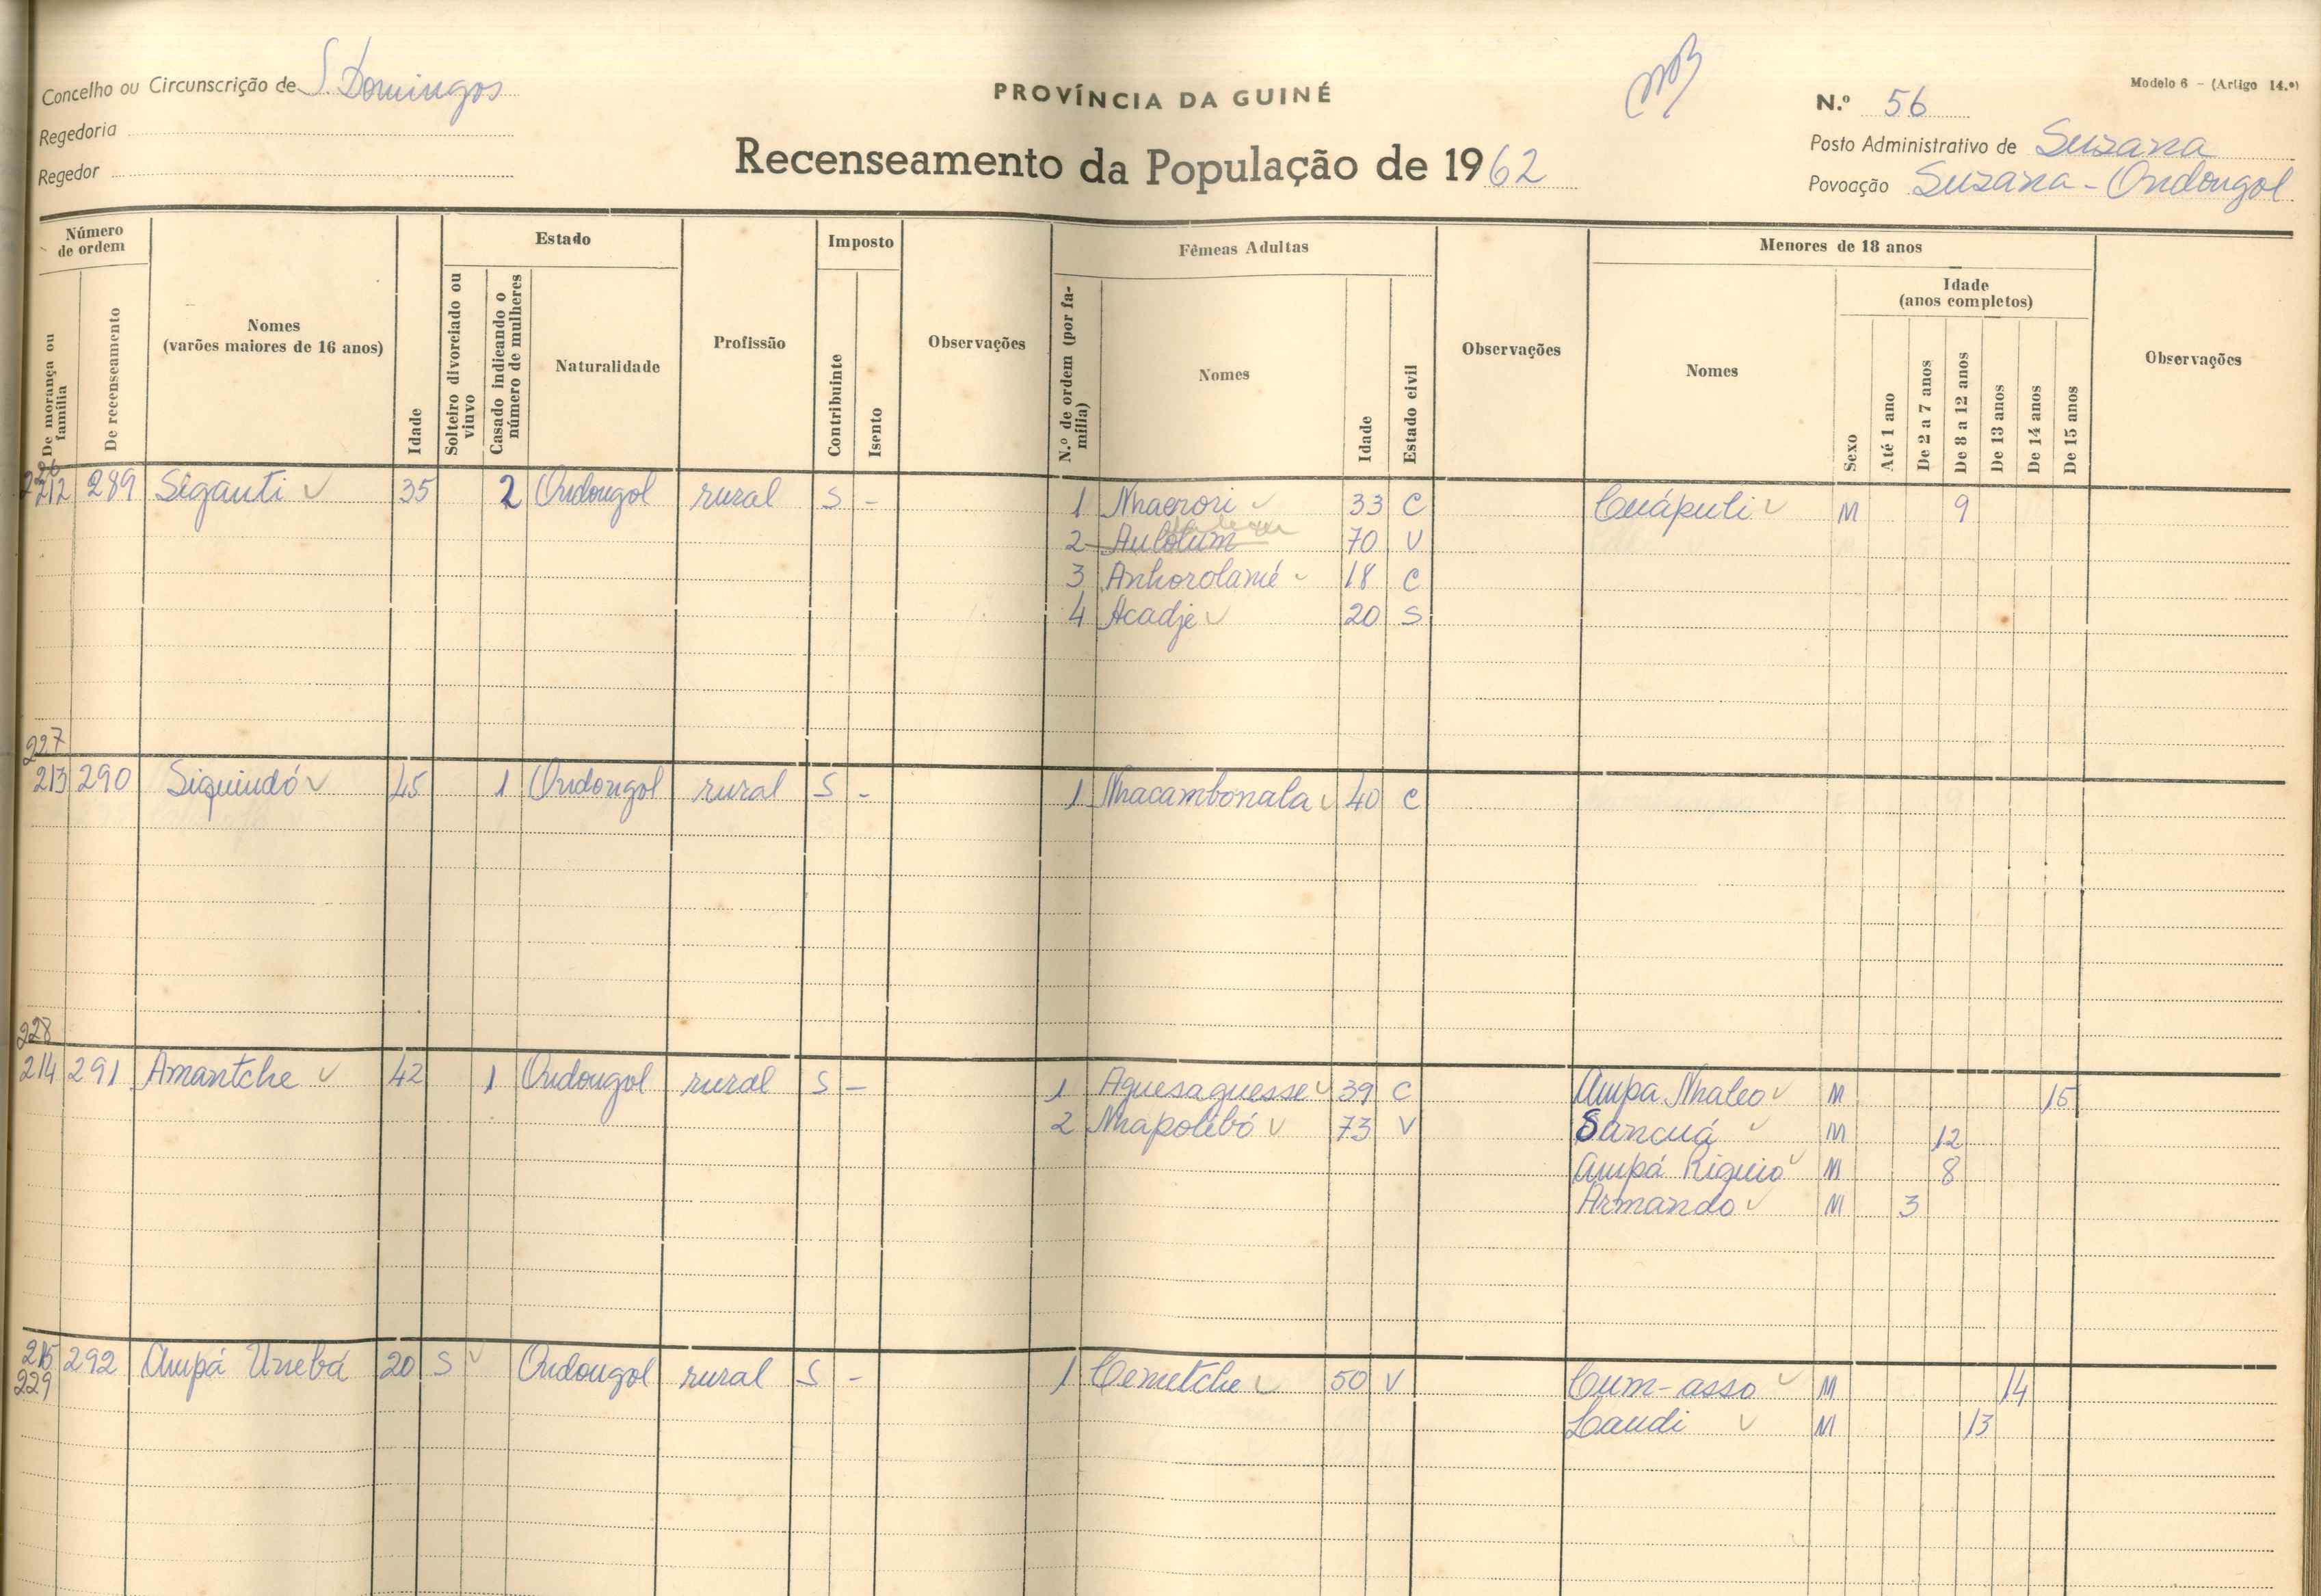 Concelho ou Circunscrição de S. Domingos
Regedoria
Regedor
PROVÍNCIA DA GUINÉ
Recenseamento da População de 1962
Modelo 6 - (Artigo 14.º)
N.º 56
Posto Administrativo de Suzana
Povoação Suzana - Ondongol
Número de ordem
De morança ou família
De recenseamento
Nomes
(varões maiores de 16 anos)
Idade
Estado
Solteiro divorciado ou viuvo
Casado indicando o número de mulheres
Naturalidade
Profissão
Imposto
Contribuinte
Isento
Observações
Fêmeas Adultas
N.º de ordem (por família)
Nomes
Idade
Estado civil
Observações
Menores de 18 anos
Nomes
Sexo
Idade
(anos completos)
Até 1 ano
De 2 a 7 anos
De 8 a 12 anos
De 13 anos
De 14 anos
De 15 anos
Observações
226
212 289 Siganti 35 2 Ondongol rural S - 1 Nhaerori 33 C Cuápuli M 9
2 Aulotum 70 V
3 Anhorolamé 18 C
4 Acadje 20 S
227
213 290 Siquindó 45 1 Ondongol rural S - 1 Nhacambonala 40 C
228
214 291 Amantche 42 1 Ondongol rural S - 1 Aquesaquesse 39 C Ampa Nhaleo M 15
2 Nhapolibó 73 V Sancuá M 12
Ampá Riquió M 8
Armando M 3
215 292 Ampá Unebá 20 S Ondongol rural S - 1 Cemetche 50 V Cum-asso M 14
229 Laudi M 13